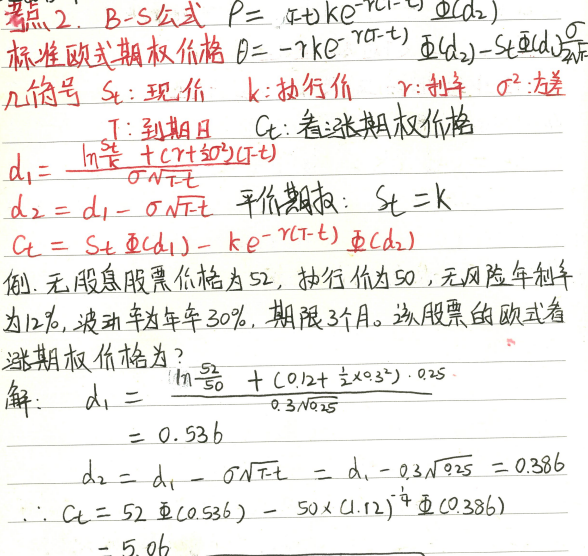 考点2. B-S公式 ρ = (T-t)ke^{-r(T-t)} Φ(d₂)
标准欧式期权价格 θ = -rke^{-r(T-t)} Φ(d₂) - StΦ(d₁)σ/2√T-
几符号 St: 现价 k: 执行价 r: 利率 σ²: 方差
T: 到期日 Ct: 看涨期权价格
d₁ = (ln St/k + (r+½σ²)(T-t)) / (σ√T-t)
d₂ = d₁ - σ√T-t 平价期权: St = K
Ct = St Φ(d₁) - ke^{-r(T-t)} Φ(d₂)
例. 无股息股票价格为52, 执行价为50, 无风险年利率
为12%, 波动率为年率30%, 期限3个月。该股票的欧式看
涨期权价格为?
解: d₁ = (ln 52/50 + (0.12 + ½×0.3²)·0.25) / (0.3√0.25)
= 0.536
d₂ = d₁ - σ√T-t = d₁ - 0.3√0.25 = 0.386
∴ Ct = 52 Φ(0.536) - 50×(1.12)^{-¼} Φ(0.386)
= 5.06